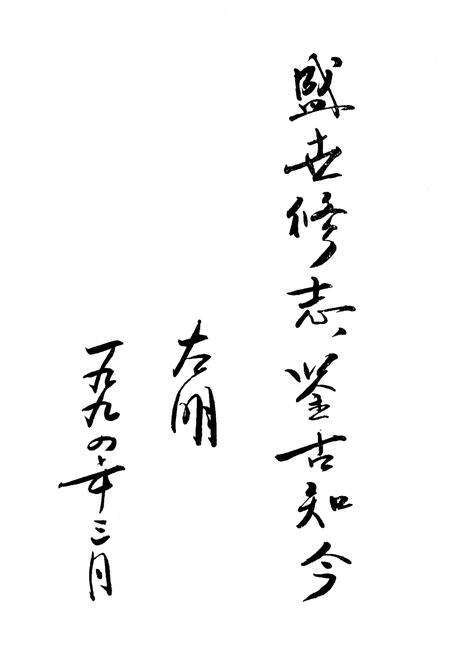 盛世修志、鉴古知今
左明
一九九四年三月